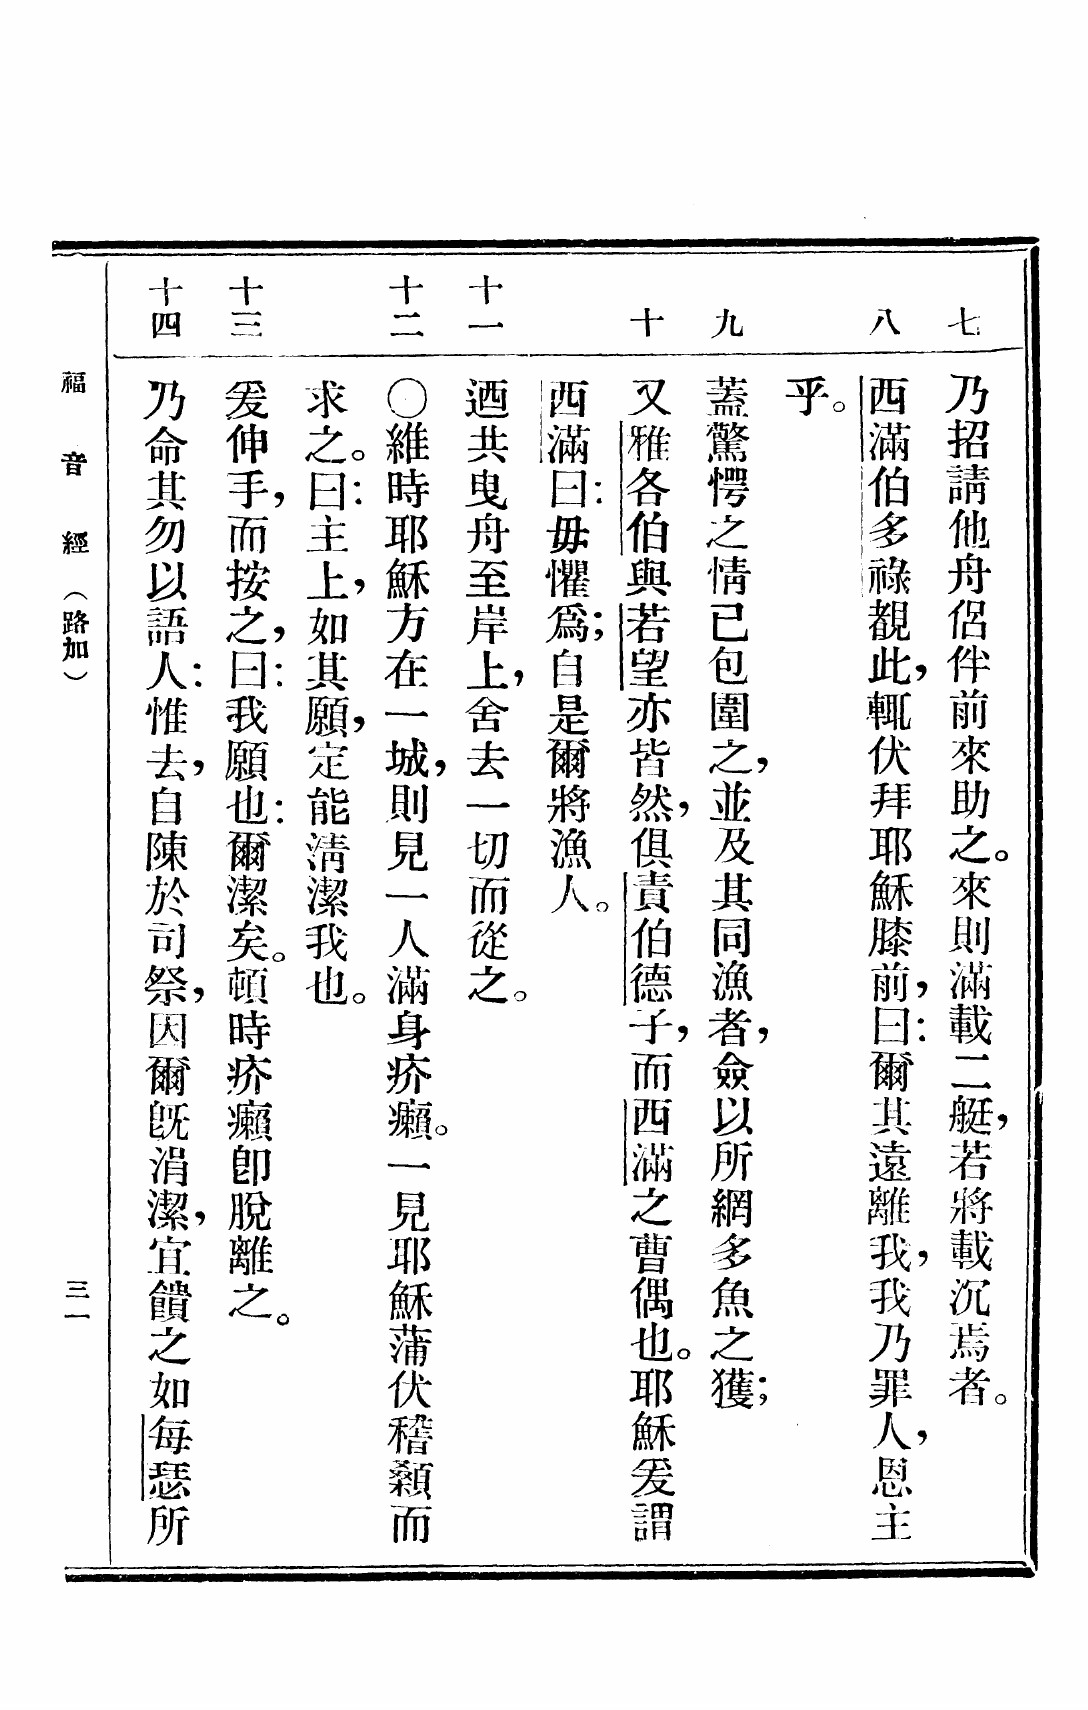 七
乃招請他舟侶伴前來助之。來則滿載二艇，若將載沉焉者。
八
西滿伯多祿覩此，輒伏拜耶穌膝前，曰：爾其遠離我，我乃罪人，恩主
乎。
九
蓋驚愕之情已包圍之，並及其同漁者，僉以所網多魚之獲；
十
又雅各伯與若望亦皆然，俱責伯德子，而西滿之曹偶也。耶穌爰謂
西滿曰：毋懼爲；自是爾將漁人。
十一
迺共曳舟至岸上，舍去一切而從之。
十二
○維時耶穌方在一城，則見一人滿身疥癩。一見耶穌蒲伏稽顙而
求之。曰：主上，如其願，定能淸潔我也。
十三
爰伸手，而按之，曰：我願也：爾潔矣。頓時疥癩卽脫離之。
十四
乃命其勿以語人：惟去，自陳於司祭，因爾旣涓潔，宜饋之如每瑟所
福音經（路加）
三一